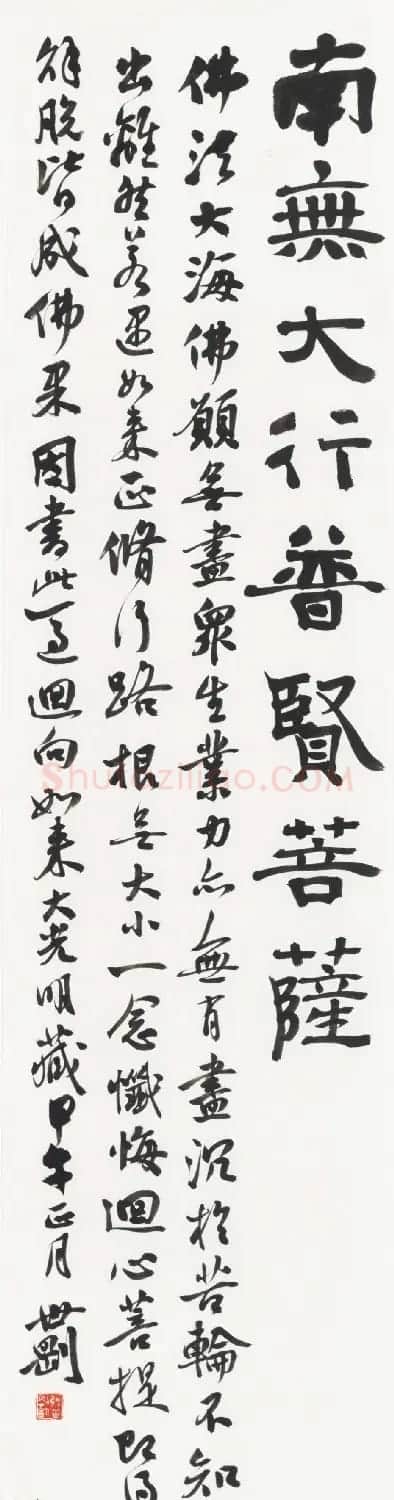 南無大行普賢菩薩
佛法大海佛願無盡眾生業力亦無有盡沉於苦輪不知
出離然若遇如來正脩行路根無大小一念懺悔迴心菩提即得
解脫皆成佛果因書此一過迴向如來大光明藏甲午正月 世剛